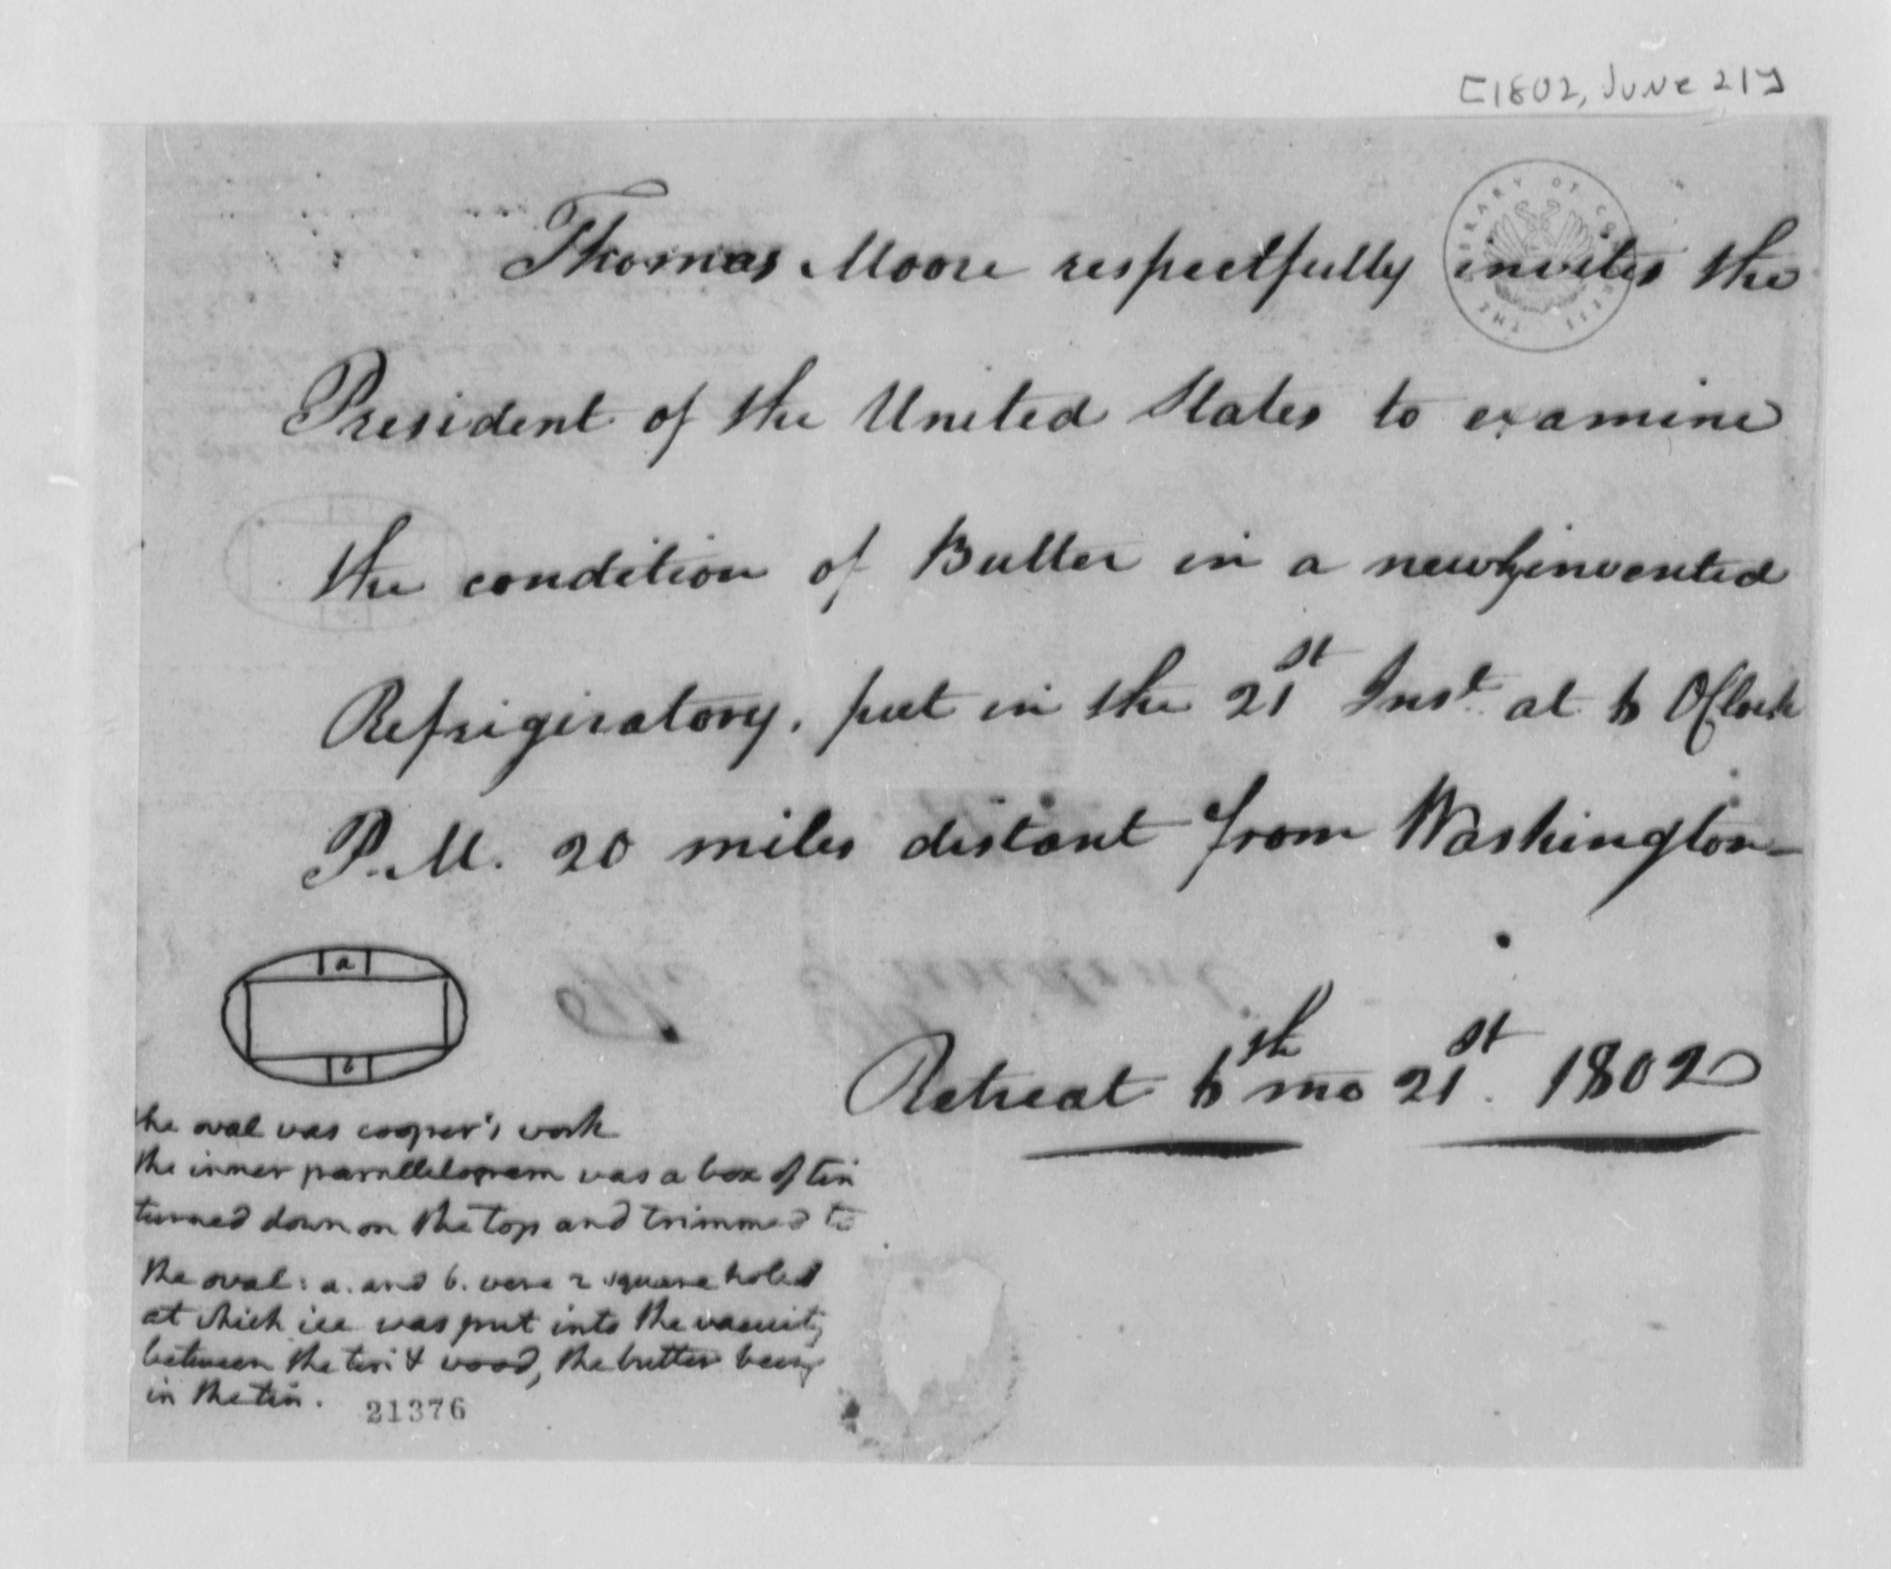 [1802, June 21]
THE LIBRARY OF CONGRESS
Thomas Moore respectfully invites the
President of the United States to examine
the condition of Butter in a newly invented
Refrigiratory, put in the 21st Inst. at 6 OClock
P.M. 20 miles distant from Washington
Retreat 6th mo 21st. 1802
a
b
the oval was cooper's work
the inner parallelogram was a box of tin
turned down on the top and trimmed to
the oval: a. and b. were 2 square holes
at which ice was put into the vacuity
between the tin & wood, the butter being
in the tin.
21376